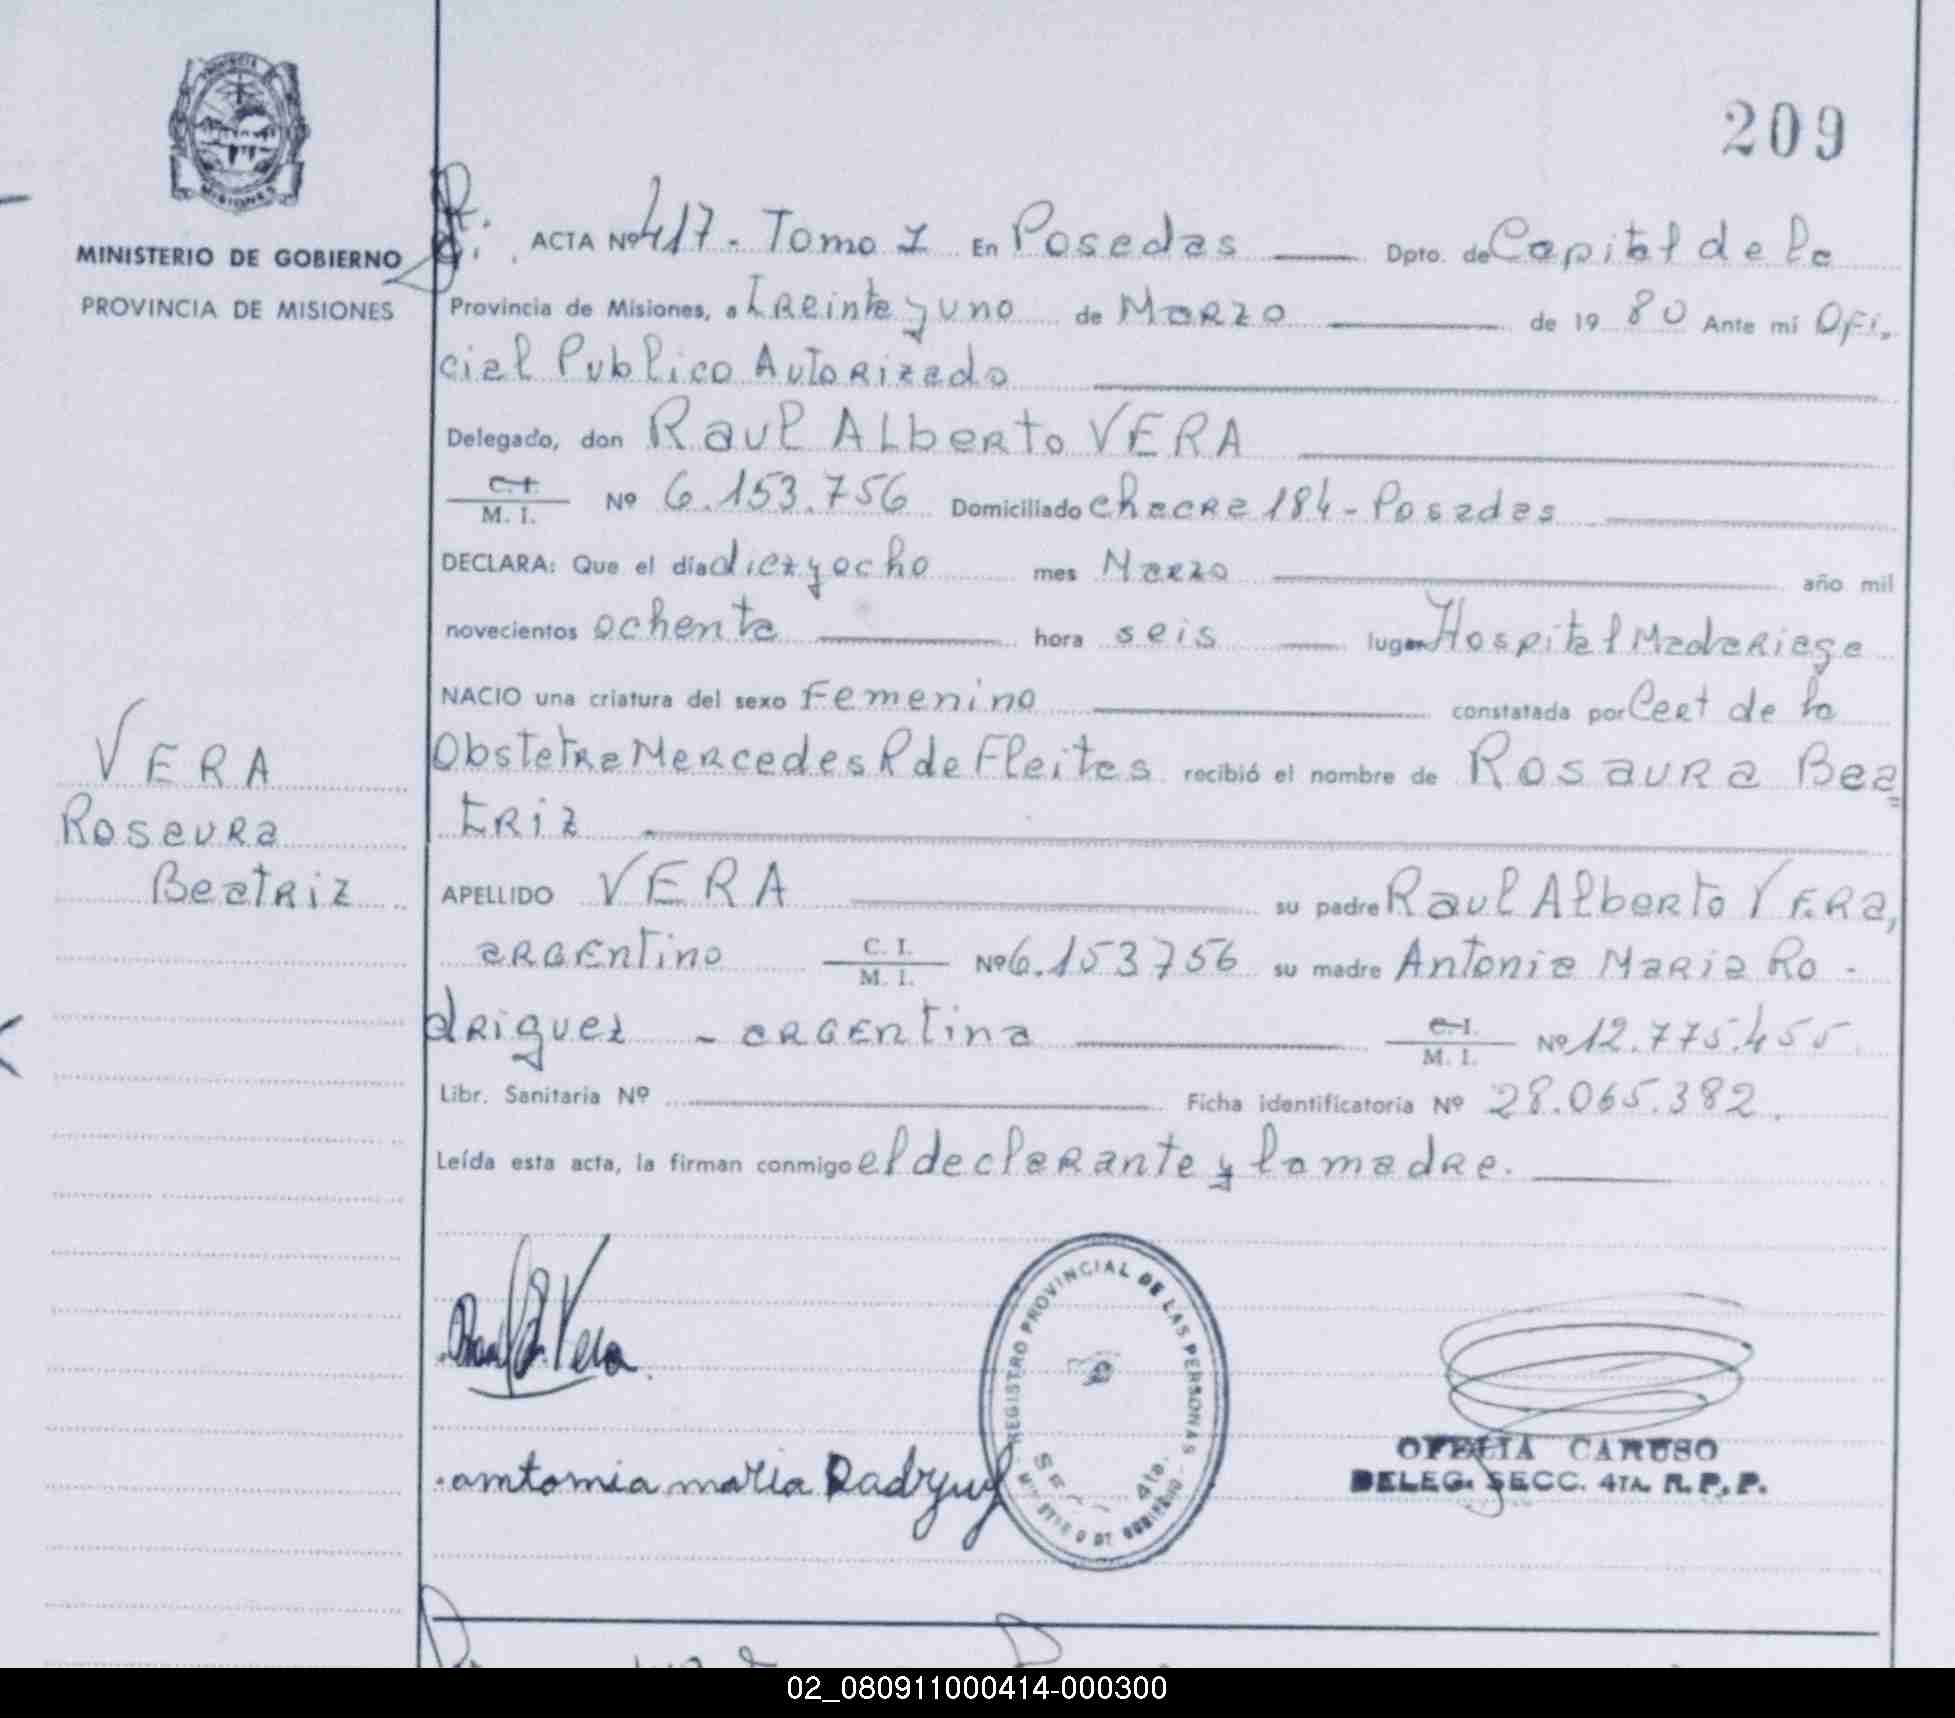 PROVINCIA
MISIONES
MINISTERIO DE GOBIERNO
PROVINCIA DE MISIONES
209
ACTA Nº 417 - Tomo I En Posadas Dpto. de Capital de la
Provincia de Misiones, a Treinta y uno de Marzo de 19 80 Ante mí Ofi-
cial Publico Autorizado
Delegado, don Raul Alberto VERA
C.I. M. I. Nº 6.153.756 Domiciliado chacra 184 - Posadas
DECLARA: Que el día diez y ocho mes Marzo año mil
novecientos ochenta hora seis lugar Hospital Madariaga
NACIO una criatura del sexo Femenino constatada por Cert de la
Obstetra Mercedes R de Fleitas recibió el nombre de Rosaura Bea
triz
APELLIDO VERA su padre Raul Alberto VERA,
argentino C. I. M. I. Nº 6.153756 su madre Antonia Maria Ro-
driguez - argentina C.I. M. I. Nº 12.775.455
Libr. Sanitaria Nº Ficha identificatoria Nº 28.065.382.
Leída esta acta, la firman conmigo el declarante y la madre.
VERA
Rosaura
Beatriz
Raul A. Vera
antonia maria Radryuz
REGISTRO PROVINCIAL DE LAS PERSONAS
4ta.
OFELIA CARUSO
DELEG. SECC. 4TA. R.P.P.
02_080911000414-000300